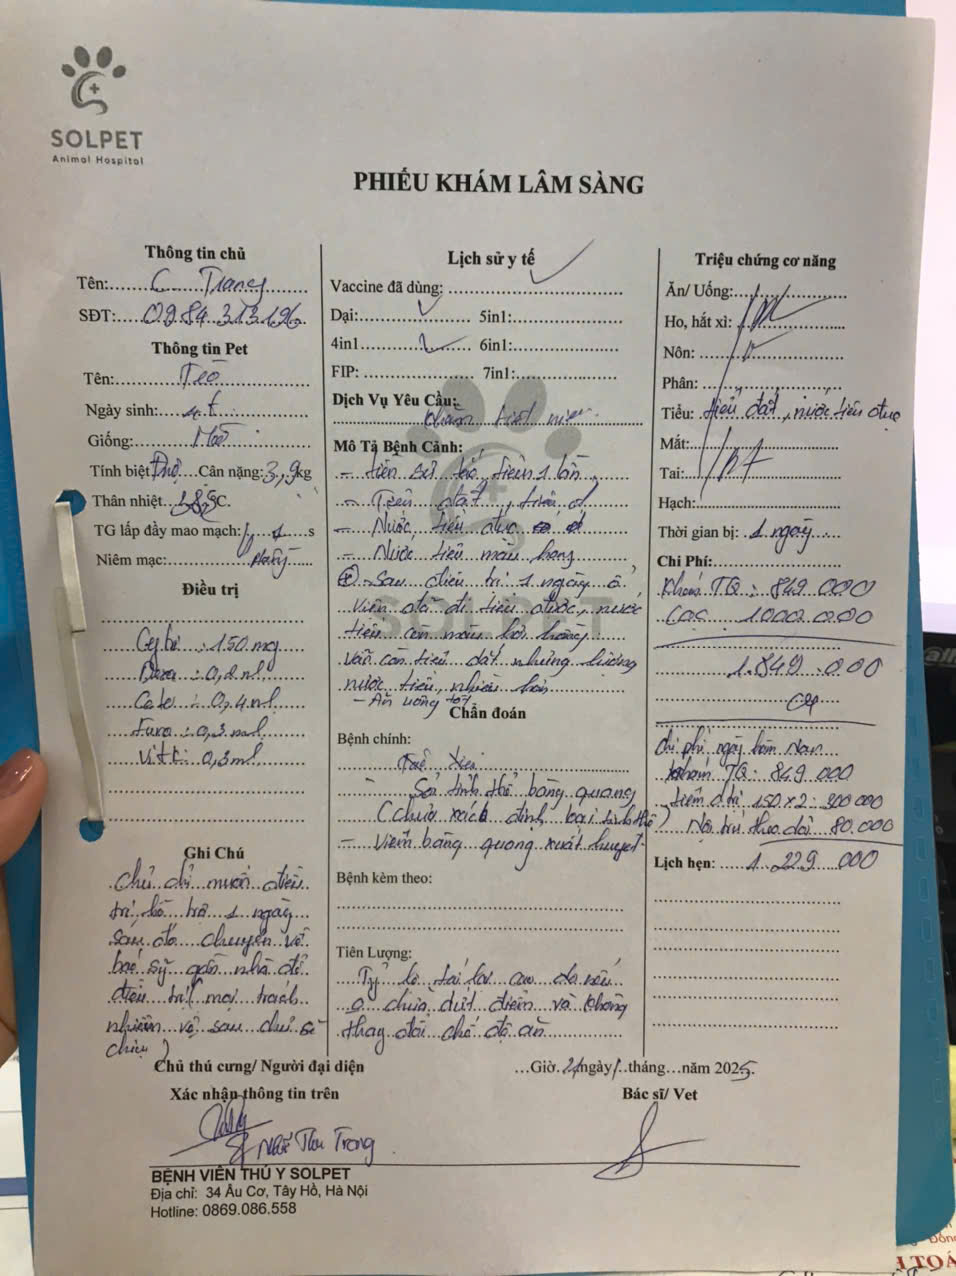 SOLPET
Animal Hospital
PHIẾU KHÁM LÂM SÀNG
Thông tin chủ
Tên: C Trang
SĐT: 0984.313.126
Thông tin Pet
Tên: Tèo
Ngày sinh: 4t
Giống:
Tính biệt: Đực Cân nặng: 3,9kg
Thân nhiệt C.
TG lấp đầy mao mạch: 1 s
Niêm mạc:
Điều trị
: 150 mg
Dexa : 0,2 ml
Cato : 0,4 ml
Furo : 0,3 ml
Vit C : 0,3ml
Ghi Chú
Chủ chỉ muốn điều
trị hỗ trợ 1 ngày
sau đó chuyển về
bác sỹ gần nhà để
điều trị mọi trách
nhiệm về sau chủ sẽ
chịu
Lịch sử y tế
Vaccine đã dùng:
Dại: 5in1:
4in1 6in1:
FIP: 7in1:
Dịch Vụ Yêu Cầu:
Khám tiết niệu
Mô Tả Bệnh Cảnh:
- tiền sử bí tiểu 1 lần
- Tiểu dắt, tiểu
- Nước tiểu đục
- Nước tiểu màu hồng
Sau điều trị 1 ngày ở
viện đã đi tiểu được, nước
tiểu còn màu hơi hồng
vẫn còn tiểu dắt nhưng lượng
nước tiểu nhiều hơn
- Ăn uống tốt
SOLPET
Chẩn đoán
Bệnh chính:
- Sỏi tinh thể bàng quang
(chưa xác định loại tinh thể)
- Viêm bàng quang xuất huyết
Bệnh kèm theo:
Tiên Lượng:
Tỷ lệ tái lại cao do nếu
chưa dứt điểm và không
thay đổi chế độ ăn
Triệu chứng cơ năng
Ăn/ Uống:
Ho, hắt xì:
Nôn:
Phân:
Tiểu: tiểu dắt, nước tiểu đục
Mắt:
Tai:
Hạch:
Thời gian bị: 1 ngày
Chi Phí:
Khám TQ: 849.000
Cọc 1.000.000
1.849.000
Chi phí ngày hôm nay
Khám TQ: 849.000
tiêm đ trị 150 x 2: 300 000
Nội trú theo dõi 80.000
Lịch hẹn: 1.229.000
Chủ thú cưng/ Người đại diện
Xác nhận thông tin trên
Thu Trang
...Giờ. 24 ngày 1. tháng...năm 2025
Bác sĩ/ Vet
BỆNH VIỆN THÚ Y SOLPET
Địa chỉ: 34 Âu Cơ, Tây Hồ, Hà Nội
Hotline: 0869.086.558